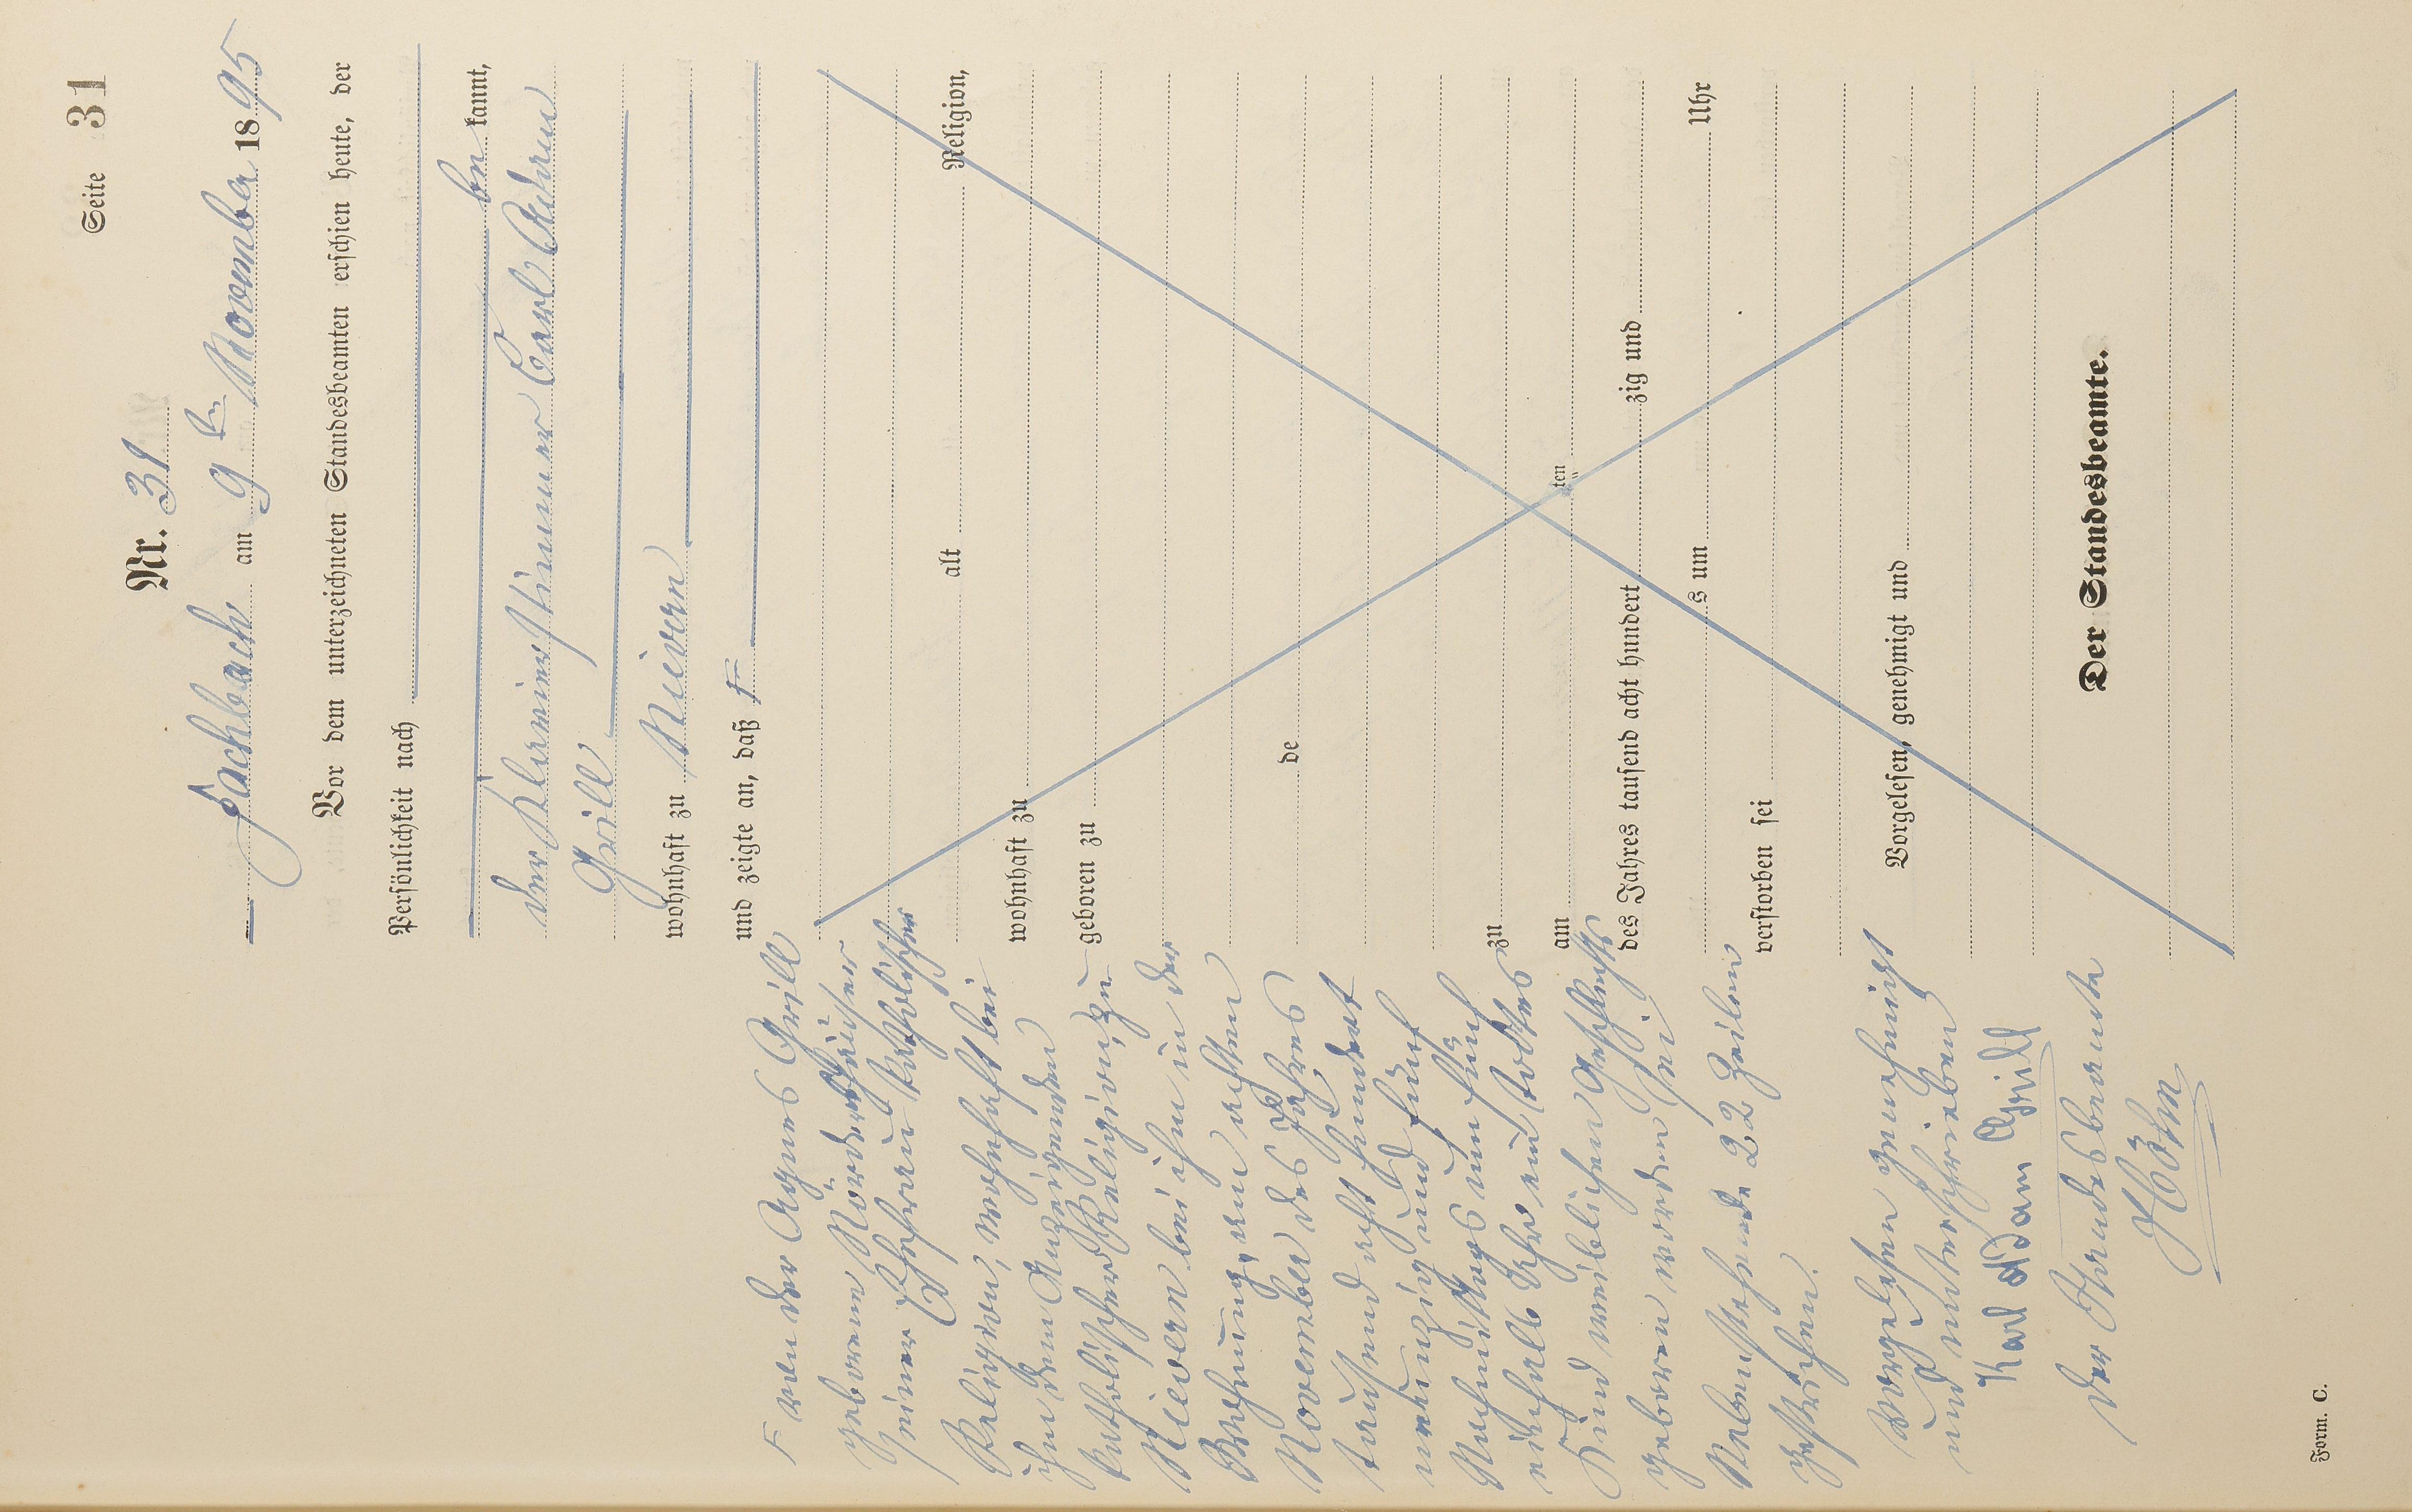 Seite 31
Nr. 31
Fachbach am 9ten November 1895
Vor dem unterzeichneten Standesbeamten erschien heute, der
Persönlichkeit nach
be kannt,
der Klavierstimmer Carl Adam
Grill
wohnhaft zu Nievern
und zeigte an, daß F
alt Religion,
wohnhaft zu
geboren zu
de
zu
am ten
des Jahres tausend acht hundert zig und
s um Uhr
verstorben sei
Vorgelesen, genehmigt und
Der Standesbeamte.
F von der Agnes Grill
geborene Nördershäuser
seiner Ehefrau katholischer
Religion, wohnhaft bei
ihm dem Anzeigenden
katholischer Religion, zu
Nievern bei ihm in der
Wohnung, am achten
November des Jahres
tausend acht hundert
neunzig und fünf
Nachmittags um fünf
einhalb Uhr ein todtes
Kind weiblichen Geschlechts
geboren worden sei
Nebenstehende 22 Zeilen
gestrichen.
Vorgelesen genehmigt
und unterschrieben
Karl Adam Grill
Der Standesbeamte
Höhn
Form. C.